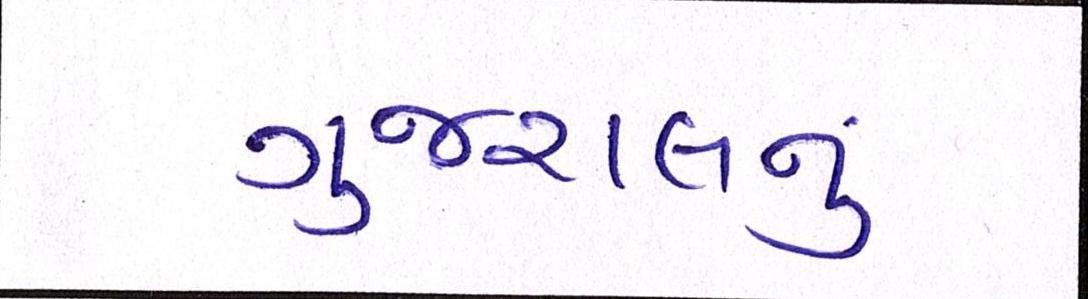 ગુજરાલનું